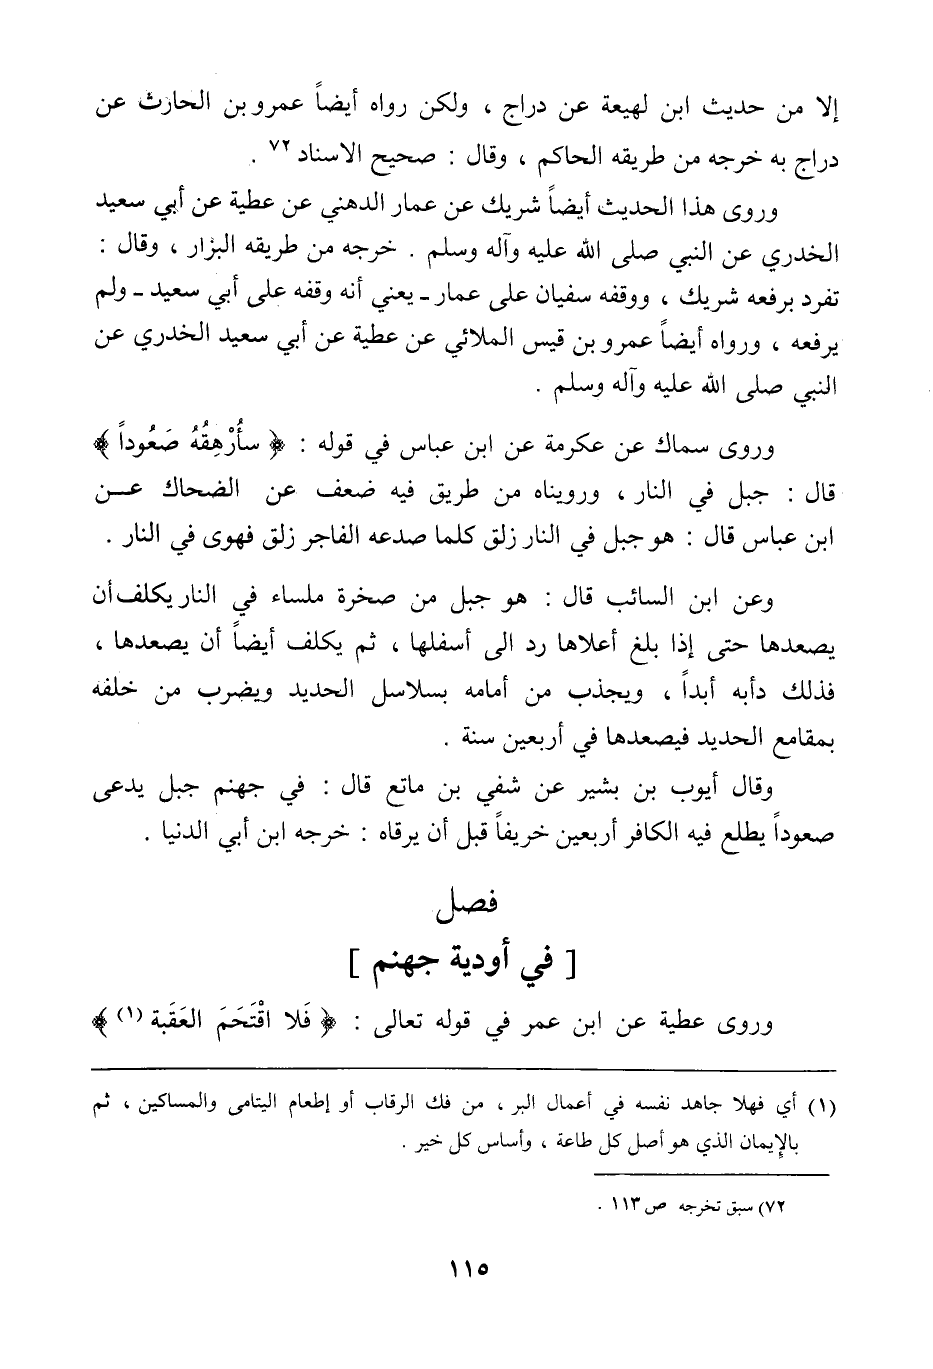 إلا من حديث ابن لهيعة عن دراج ، ولكن رواه أيضاً عمرو بن الحارث عن
دراج به خرجه من طريقه الحاكم ، وقال : صحيح الاسناد ٧٢ .
وروى هذا الحديث أيضاً شريك عن عمار الدهني عن عطية عن أبي سعيد
الخدري عن النبي صلى الله عليه وآله وسلم . خرجه من طريقه البزار ، وقال :
تفرد برفعه شريك ، ووقفه سفيان على عمار ـ يعني أنه وقفه على أبي سعيد ـ ولم
يرفعه ، ورواه أيضاً عمرو بن قيس الملائي عن عطية عن أبي سعيد الخدري عن
النبي صلى الله عليه وآله وسلم .
وروى سماك عن عكرمة عن ابن عباس في قوله : ﴿ سأُرْهِقُهُ صَعُوداً ﴾
قال : جبل في النار ، ورويناه من طريق فيه ضعف عن الضحاك عــن
ابن عباس قال : هو جبل في النار زلق كلما صدعه الفاجر زلق فهوى في النار .
وعن ابن السائب قال : هو جبل من صخرة ملساء في النار يكلف أن
يصعدها حتى إذا بلغ أعلاها رد الى أسفلها ، ثم يكلف أيضاً أن يصعدها ،
فذلك دأبه أبداً ، ويجذب من أمامه بسلاسل الحديد ويضرب من خلفه
بمقامع الحديد فيصعدها في أربعين سنة .
وقال أيوب بن بشير عن شفي بن ماتع قال : في جهنم جبل يدعى
صعوداً يطلع فيه الكافر أربعين خريفاً قبل أن يرقاه : خرجه ابن أبي الدنيا .
فصل
[ في أودية جهنم ]
وروى عطية عن ابن عمر في قوله تعالى : ﴿ فَلا اقْتَحَمَ العَقَبة (١) ﴾
(١) أي فهلا جاهد نفسه في أعمال البر ، من فك الرقاب أو إطعام اليتامى والمساكين ، ثم
بالإيمان الذي هو أصل كل طاعة ، وأساس كل خير .
٧٢) سبق تخرجه ص ١١٣ .
١١٥